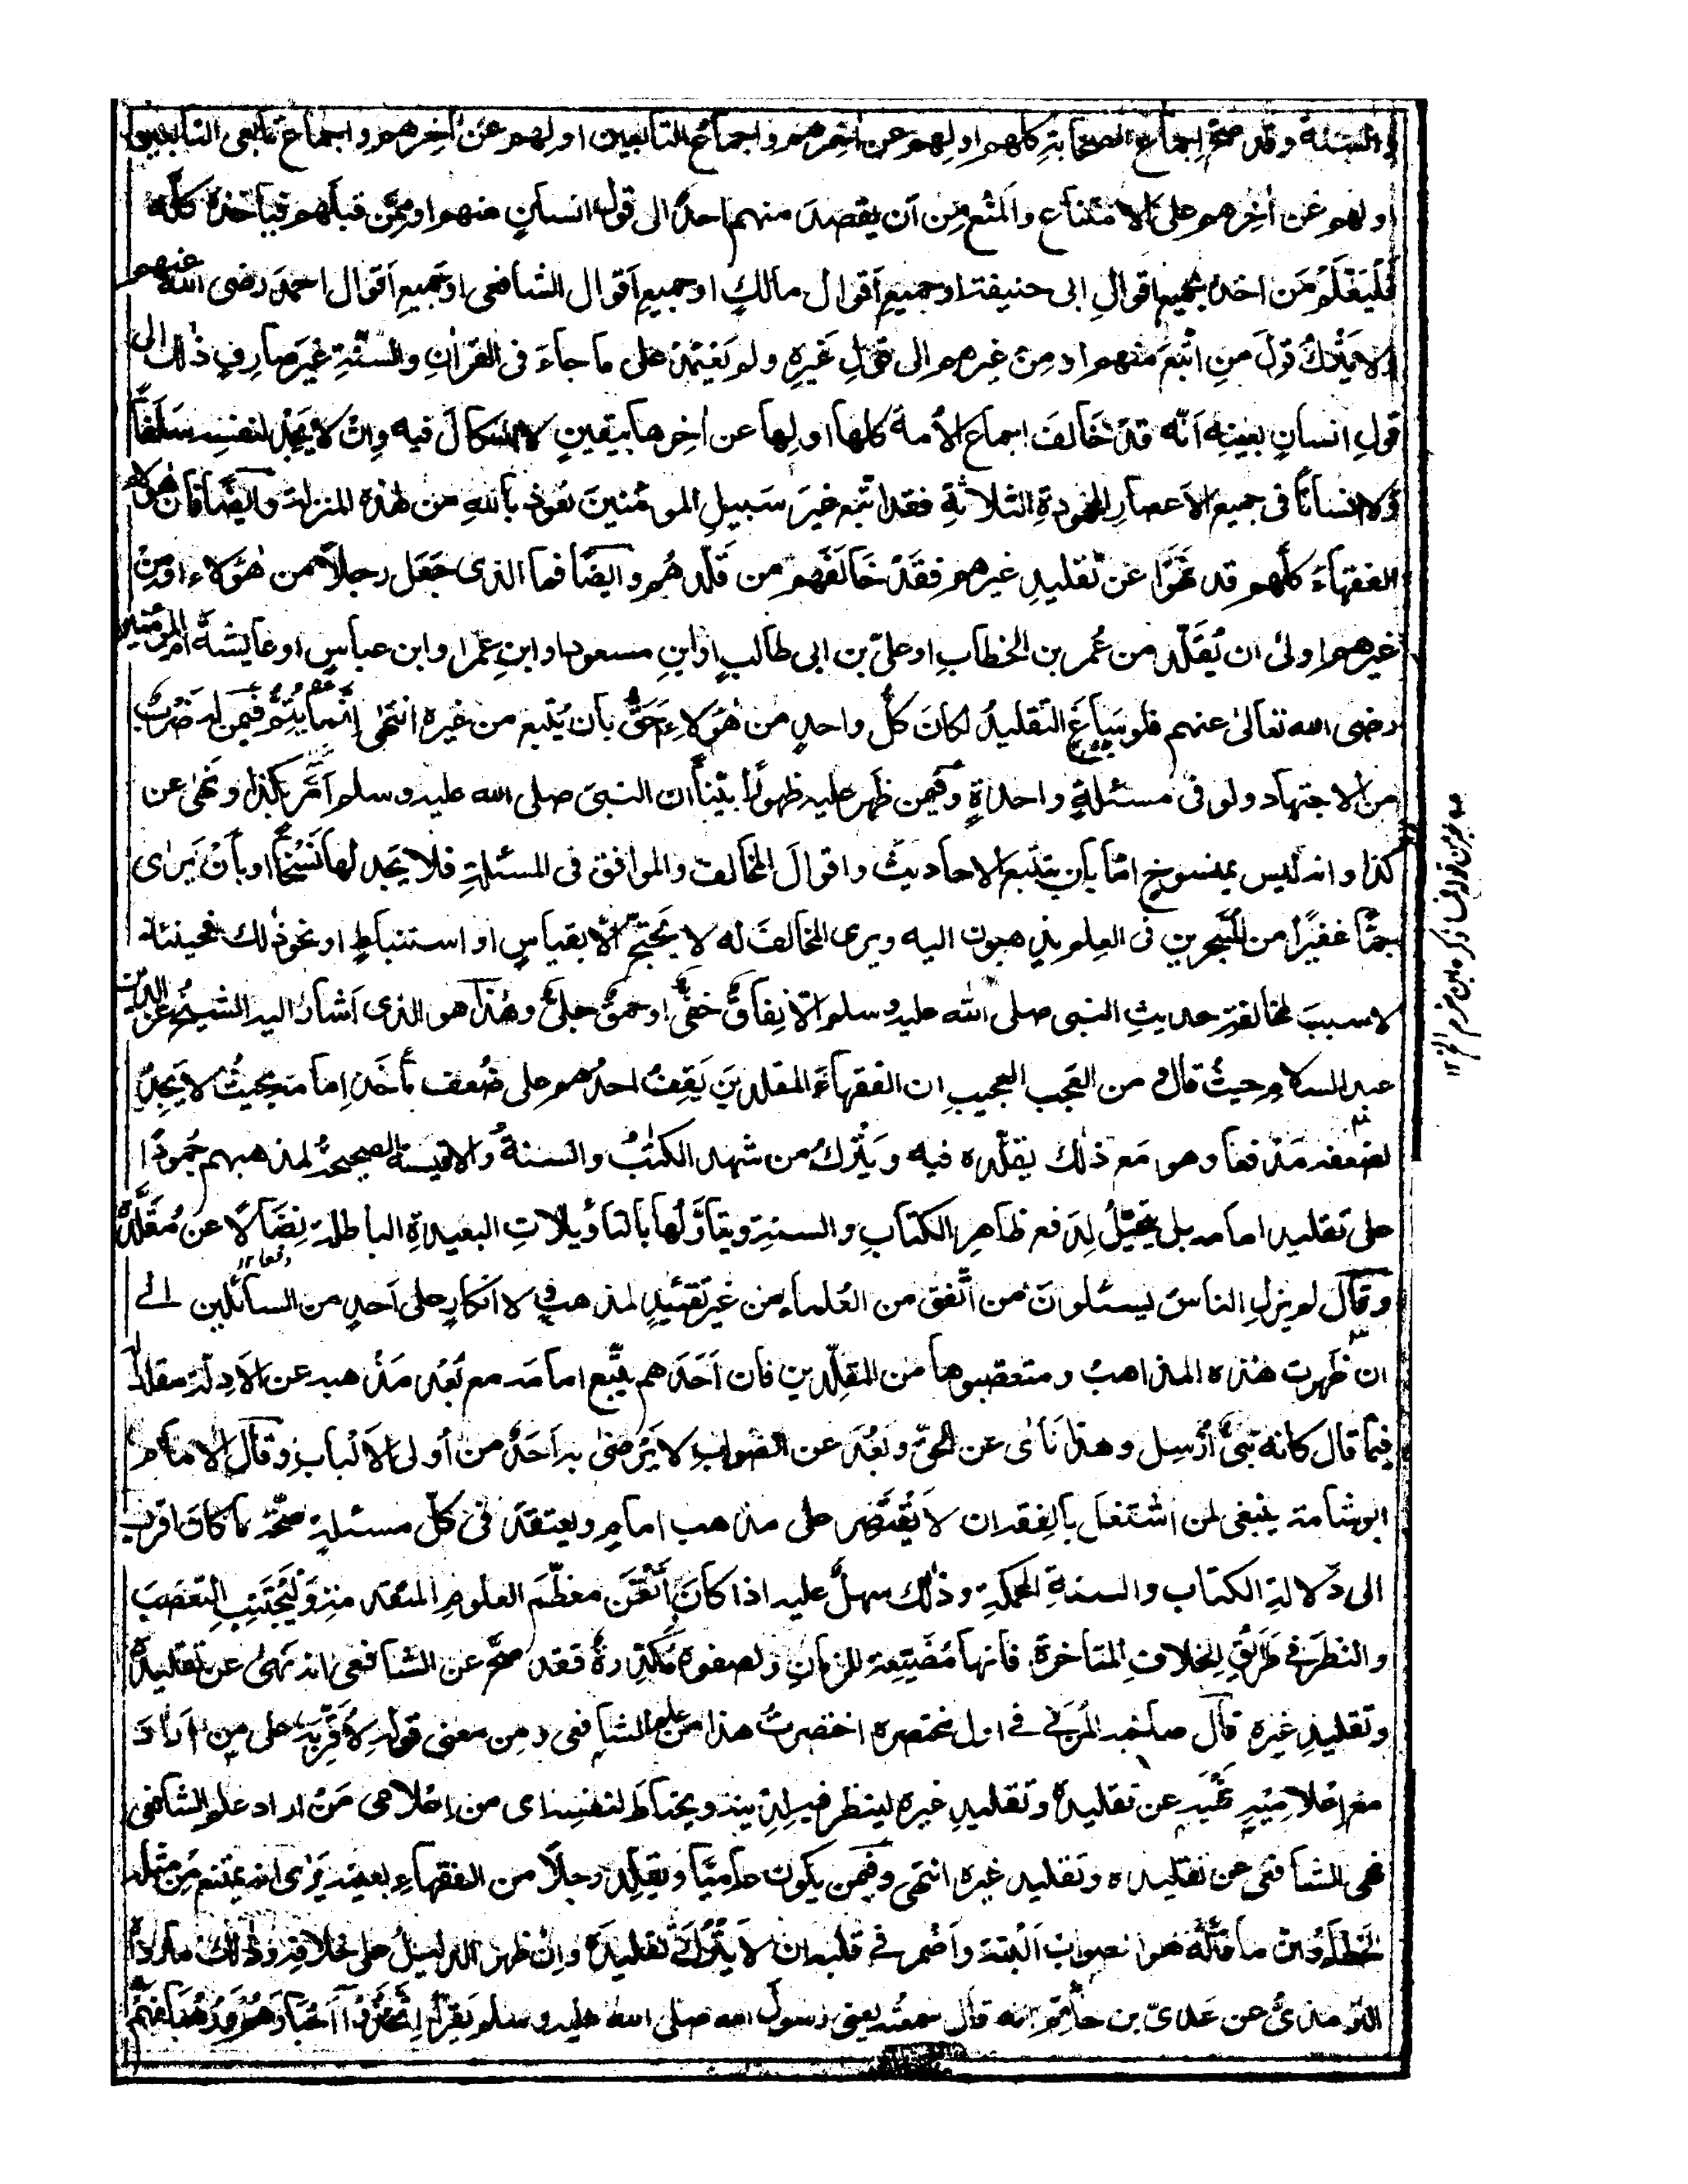 والسنة وقد صح إجماع الصحابة كلهم اولهم عن آخرهم واجماع التابعين اولهم عن آخرهم واجماع تابعى التابعين
اولهم عن اٰخرهم على الامتناع والمنع من ان يقصد منهم احد الى قول انسان منهم او ممن قبلهم فياخذه كله
فليعلم من اخذ بجميع اقوال ابى حنيفة او جميع اقوال مالك او جميع اقوال الشافعى او جميع اقوال احمد رضى الله عنهم
ولا يترك قول من اتبع منهم او من غيرهم الى قول غيره ولم يعتمد على ما جاء فى القراٰن والسنة غير صارف ذٰلك الى
قول انسان بعينه انّه قد خالف اجماع الامة كلها اولها عن اٰخرها بيقين لا اشكال فيه وانه لا يجد لنفسه سلفًا
ولا انسانًا فى جميع الاعصار المحمودة الثلاثة فقد اتبع غير سبيل المومنين نعوذ بالله من هٰذه المنزلة وايضًا فان هٰولاء
الفقهاء كلهم قد نهوا عن تقليد غيرهم فقد خالفهم من قلّدهم وايضًا فما الذى جعل رجلاً من هٰؤلاء او من
غيرهم اولىٰ ان يُقلّد من عُمر بن الخطاب او علىّ بن ابى طالب او ابن مسعود او ابن عمر او ابن عباس او عايشة ام المومنين
رضى الله تعالىٰ عنهم فلو ساغ التقليد لكان كلُّ واحد من هٰؤلاء احقّ بان يُتبع من غيره انتهٰى إنّما يتمّ فيمن له ضرب
من الاجتهاد ولو فى مسئلةٍ واحدةٍ وفيمن ظهر عليه ظهورًا بيّنًا ان النبىّ صلى الله عليه وسلم اَمَر بكذا ونهٰى عن
كذا وانه ليس بمنسوخ امّا بان يتتبع الاحاديث واقوال المخالف والموافق فى المسئلة فلا يجد لها نسخًا او بأن يرٰى
جمًّا غفيرًا من المتبحرين فى العلم يذهبون اليه ويرى المخالف له لا يحتجّ الّا بقياس او استنباط او نحو ذٰلك فحينئذ
لا سبب لمخالفة حديث النبى صلى الله عليه وسلم الّا نفاقٌ خفىٌّ او حمقٌ جلىٌّ وهٰذا هو الذى اشار اليه الشيخ عز الدين
عبد السلام حيث قال ومن العجب العجيب ان الفقهاء المقلدين يقف احدهم على ضعف مأخذ امامه بحيث لا يجد
لضعفه مدفعا وهو مع ذٰلك يقلّده فيه ويترك من شهد الكتٰب والسنة والاقيسة الصحيحة لمذهبهم جمودًا
على تقليد امامه بل يتحيّل لدفع ظاهر الكتاب والسنة ويتاوّلها بالتأويلات البعيدة الباطلة نضالًا عن مُقلَّده
وقال لم يزل الناس يسئلون من اتّفق من العُلماء من غير تقييد لمذهب ولا انكار على اَحدٍ من السائلين الى
ان ظهرت هٰذه المذاهب ومتعصبوها من المقلّدين فان اَحدهم يتّبع امامه مع بُعد مذهبه عن الادلّة مقلدا له
فيما قال كانه نبىٌّ اُرسل وهذا نأى عن الحق وبُعد عن الصواب لا يرضىٰ به اَحَدٌ من اُولى الالباب وقال الامام
ابو شامة ينبغى لمن اشتغل بالفقه ان لا يقتصر على مذهب امام ويعتقد فى كلّ مسئلةٍ صحّة ما كان اقرب
الى دلالة الكتاب والسنة المحكمة وذٰلك سهلٌ عليه اذا كان اتقن معظّم العلوم المتقدمة وليجتنب التعصب
والنظر فى طرائق الخلاف المتاخرة فانها مُضيّعة للزمان ولصفوه مكدّرة فقد صحّ عن الشافعى انه نهىٰ عن تقليده
وتقليد غيره قال صاحبه المزنى فى اول مختصره اختصرت هذا من علم الشافعى ومن معنى قوله لأقرّبه على من اراد
مع إعلاميه نهيه عن تقليده وتقليد غيره لينظر فيه لدينه ويحتاط لنفسه اى من اعلامى من اراد علم الشافعى
نهى الشافعى عن تقليده وتقليد غيره انتهى وفيمن يكون عاميًّا ويقلد رجلًا من الفقهاء بعينه يرٰى انه يمتنع من مثله
الخطأ وان ما قاله هو الصواب البتة واضمر فى قلبه ان لا يترك تقليده وان ظهر الدليل على خلافه وذٰلك ما رواه
الترمذىّ عن عدىّ بن حاتم انه قال سمعته يعنى رسول الله صلى الله عليه وسلم يقرأ اتخذوا احبارهم ورهبانهم